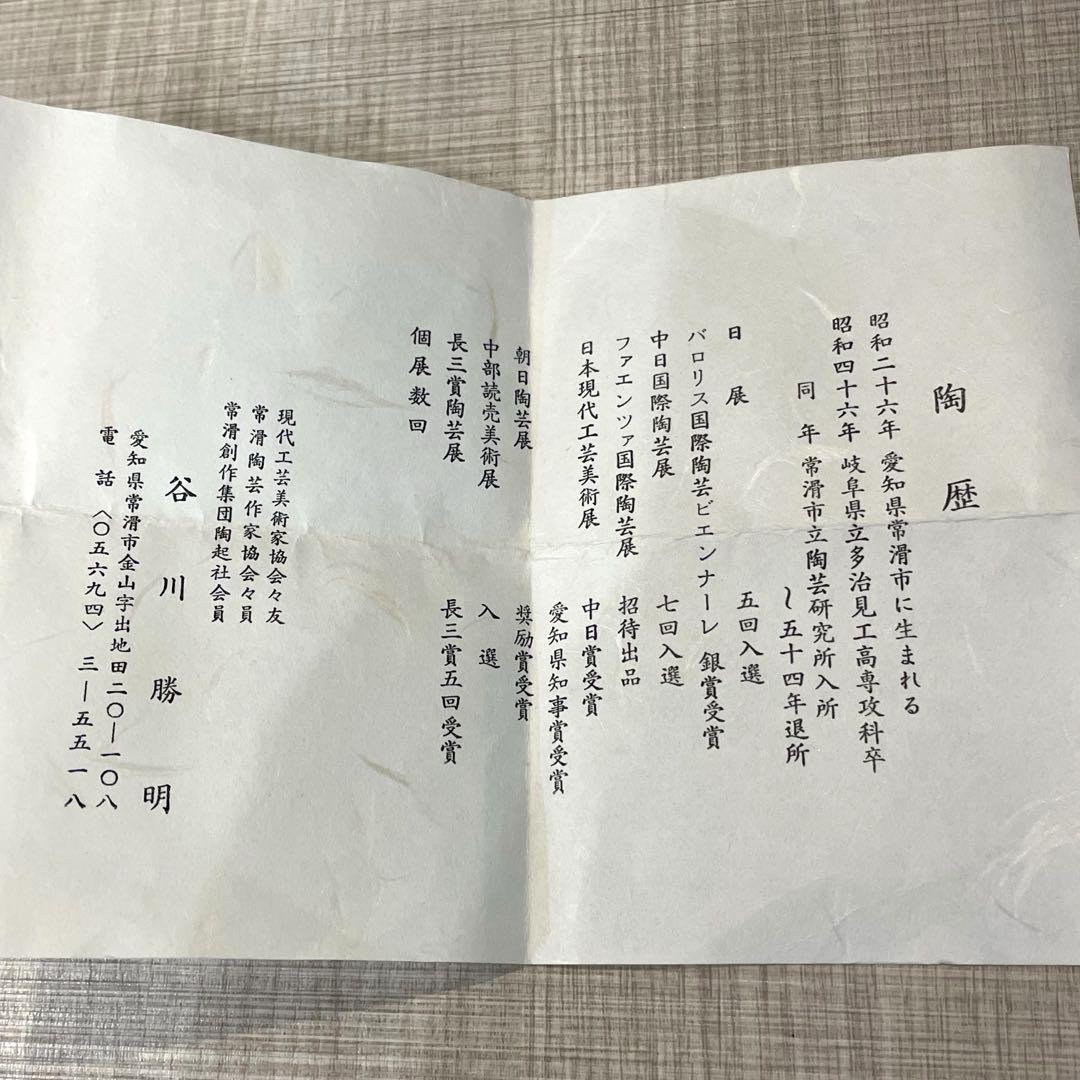 陶歴
昭和二十六年 愛知県常滑市に生まれる
昭和四十六年 岐阜県立多治見工高専攻科卒
同年 常滑市立陶芸研究所入所
〜五十四年退所
日展 五回入選
バロリス国際陶芸ビエンナーレ 銀賞受賞
中日国際陶芸展 七回入選
ファエンツァ国際陶芸展 招待出品
日本現代工芸美術展 中日賞受賞
愛知県知事賞受賞
朝日陶芸展 奨励賞受賞
中部読売美術展 入選
長三賞陶芸展 長三賞五回受賞
個展数回
現代工芸美術家協会々友
常滑陶芸作家協会々員
常滑創作集団陶起社会員
谷川勝明
愛知県常滑市金山字出地田二〇―一〇八
電話〈〇五六九四〉三―五五一八